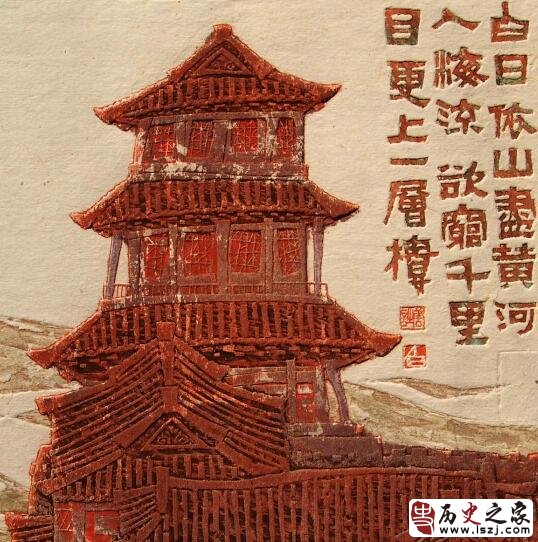 白日依山盡黄河
入海流欲窮千里
目更上一層樓
历史之家
www.lszj.com